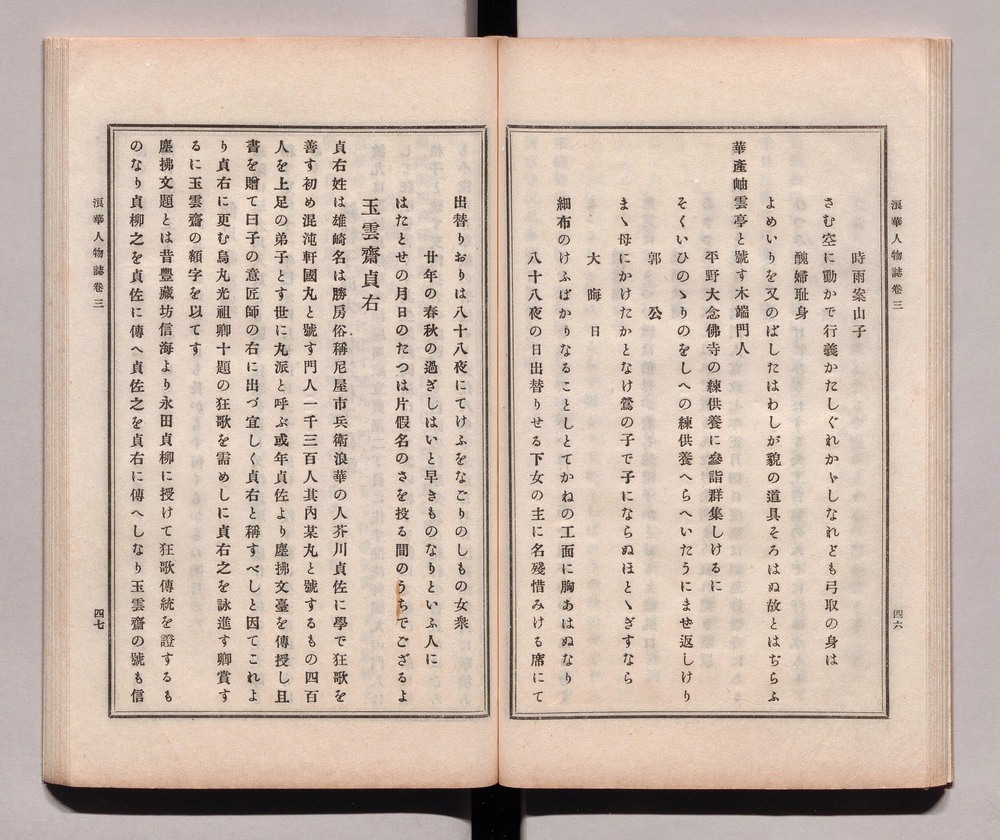 浪華人物誌卷三
四六
時雨案山子
さむ空に動かで行義かたしぐれかゝしなれども弓取の身は
醜婦耻身
よめいりを又のばしたはわしが貌の道具そろはぬ故とはぢらふ
華產岫雲亭と號す木端門人
平野大念佛寺の練供養に參詣群集しけるに
そくいひのゝりのをしへの練供養へらへいたうにませ返しけり
郭公
まゝ母にかけたかとなけ鶯の子で子にならぬほとゝぎすなら
大晦日
細布のけふばかりなることしとてかねの工面に胸あはぬなり
八十八夜の日出替りせる下女の主に名殘惜みける席にて
出替りおりは八十八夜にてけふをなごりのしもの女衆
廿年の春秋の過ぎしはいと早きものなりといふ人に
はたとせの月日のたつは片假名のさを投る間のうちでござるよ
玉雲齋貞右
貞右姓は雄崎名は勝房俗稱尼屋市兵衛浪華の人芥川貞佐に學で狂歌を
善す初め混沌軒國丸と號す門人一千三百人其內某丸と號するもの四百
人を上足の弟子とす世に丸派と呼ぶ或年貞佐より塵拂文臺を傳授し且
書を贈て曰子の意匠師の右に出づ宜しく貞右と稱すべしと因てこれよ
り貞右に更む烏丸光祖卿十題の狂歌を需めしに貞右之を詠進す卿賞す
るに玉雲齋の額字を以てす
塵拂文題とは昔豐藏坊信海より永田貞柳に授けて狂歌傳統を證するも
のなり貞柳之を貞佐に傳へ貞佐之を貞右に傳へしなり玉雲齋の號も信
浪華人物誌卷三
四七